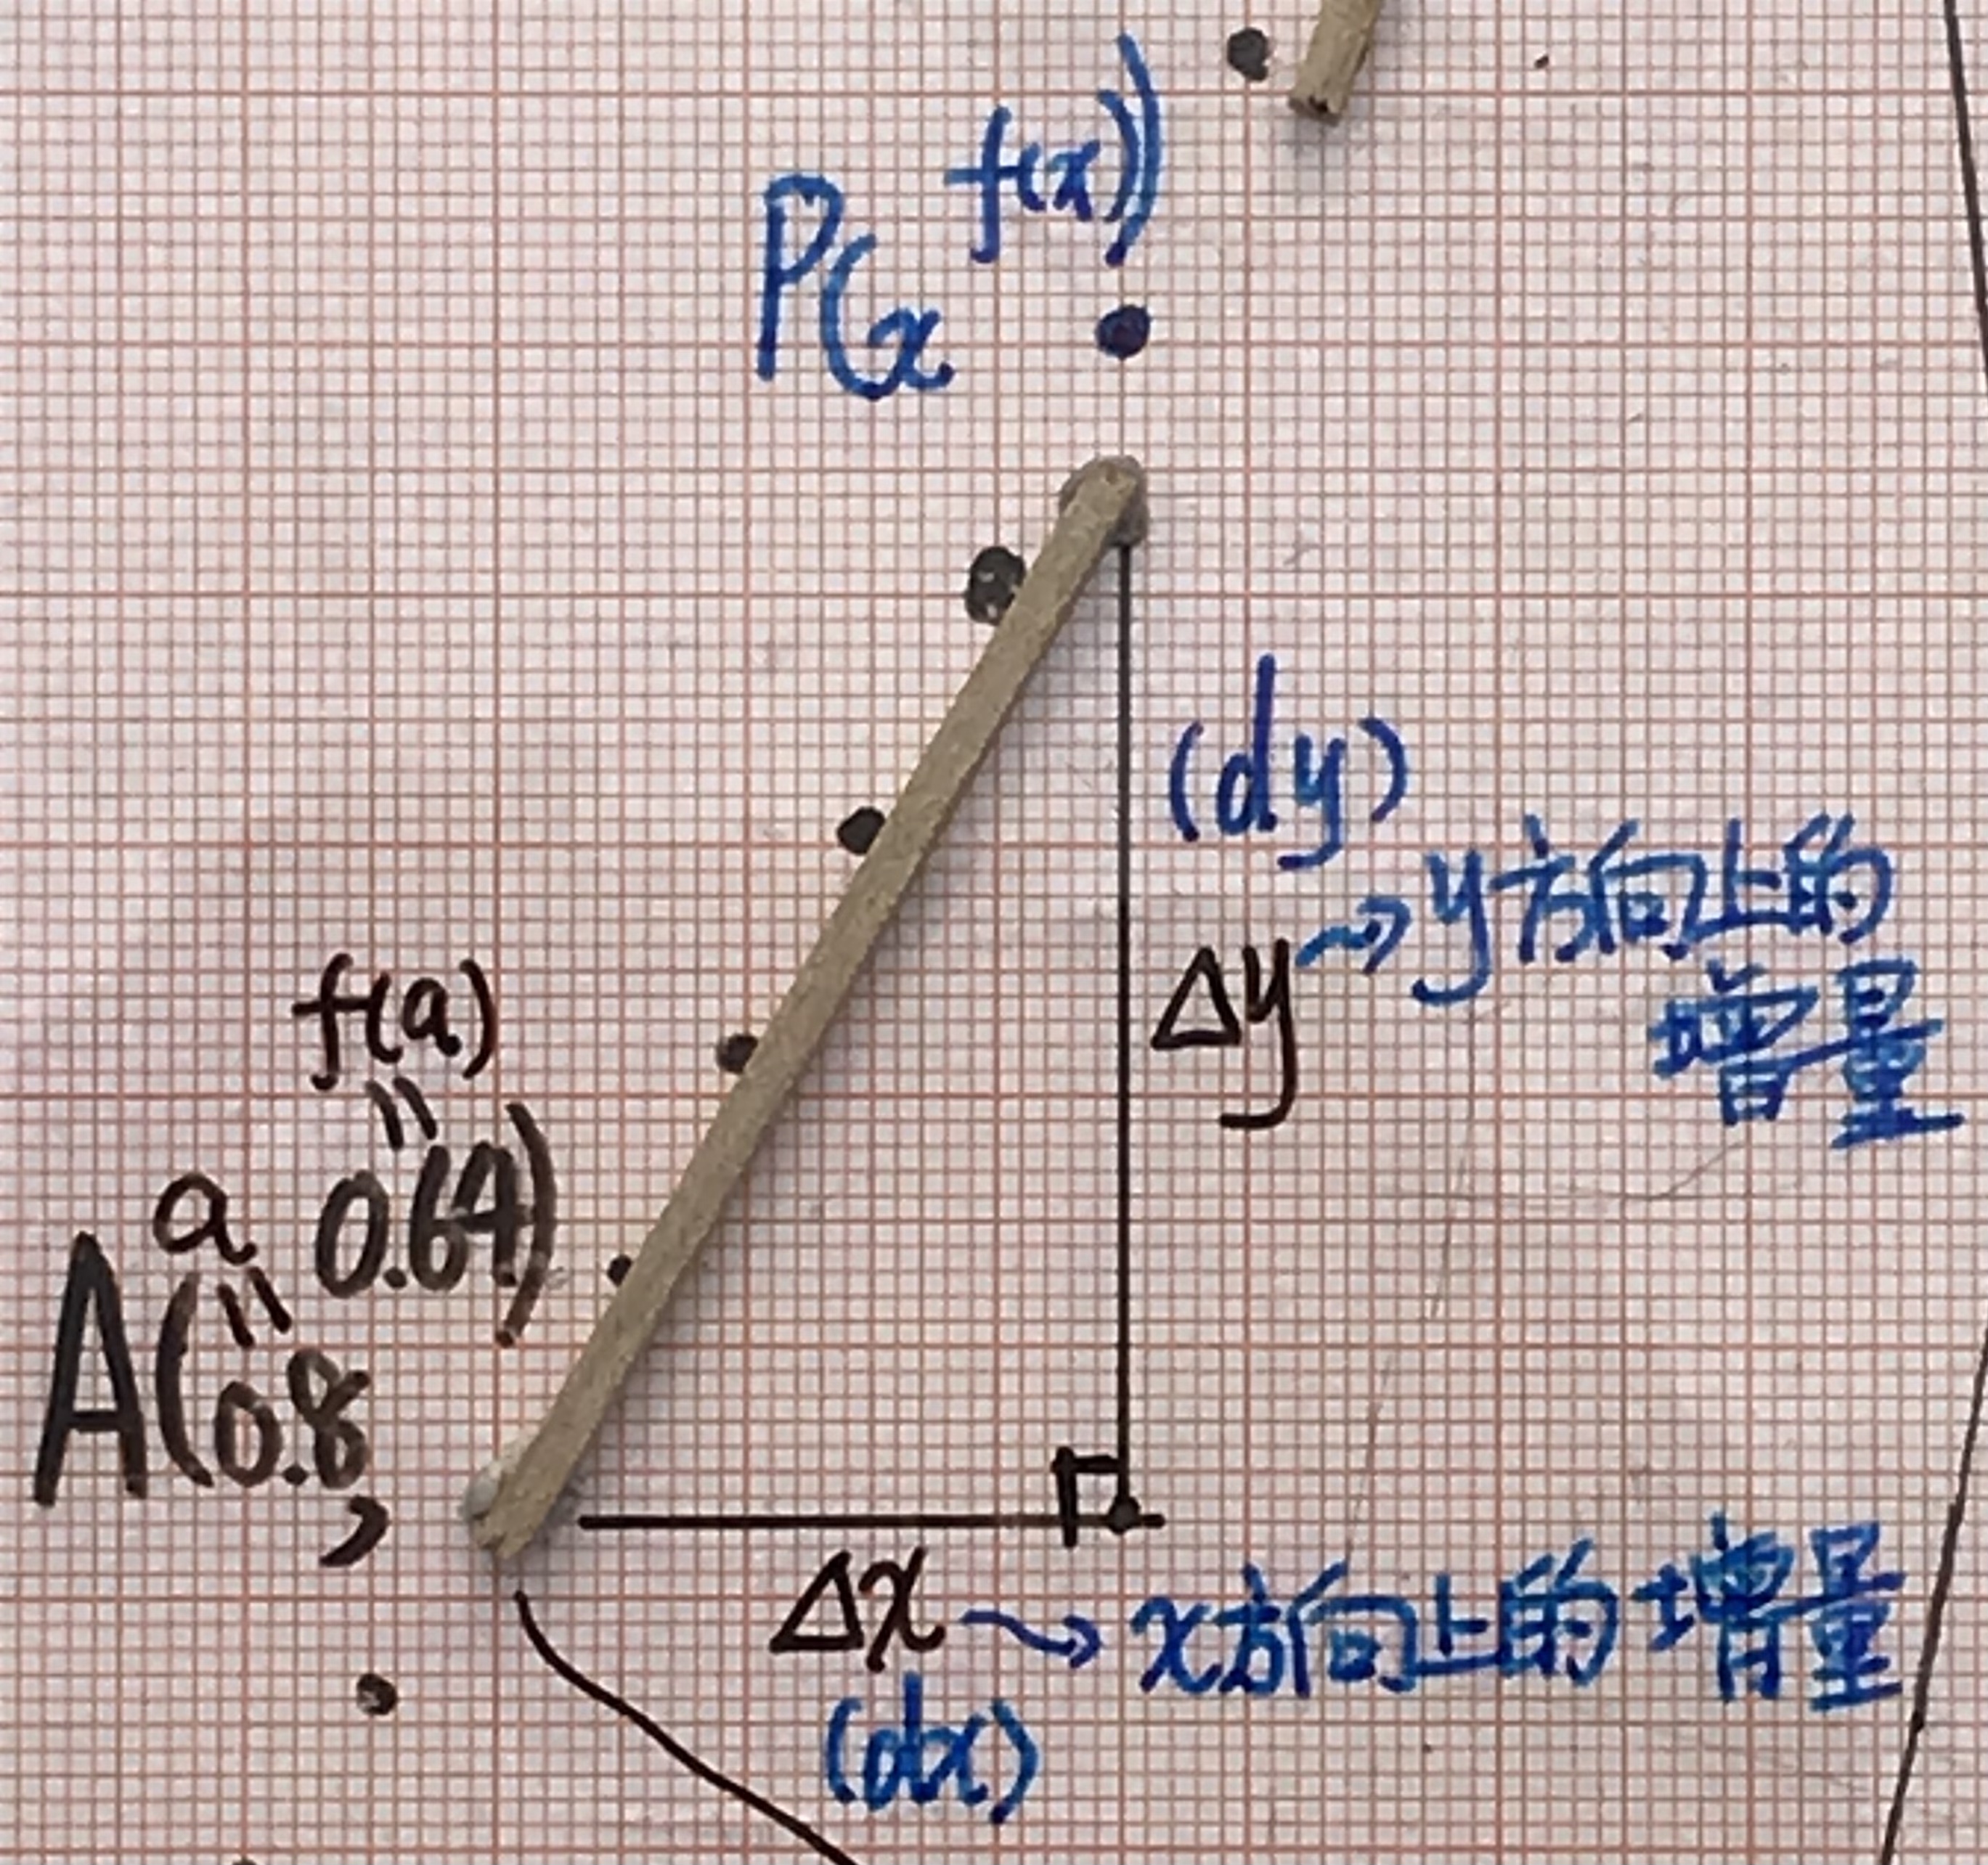 P(x
f(x))
(dy)
Δy → y方向上的
增量
f(a)
=
a 0.64)
=
A(0.8,
Δx → x方向上的增量
(dx)